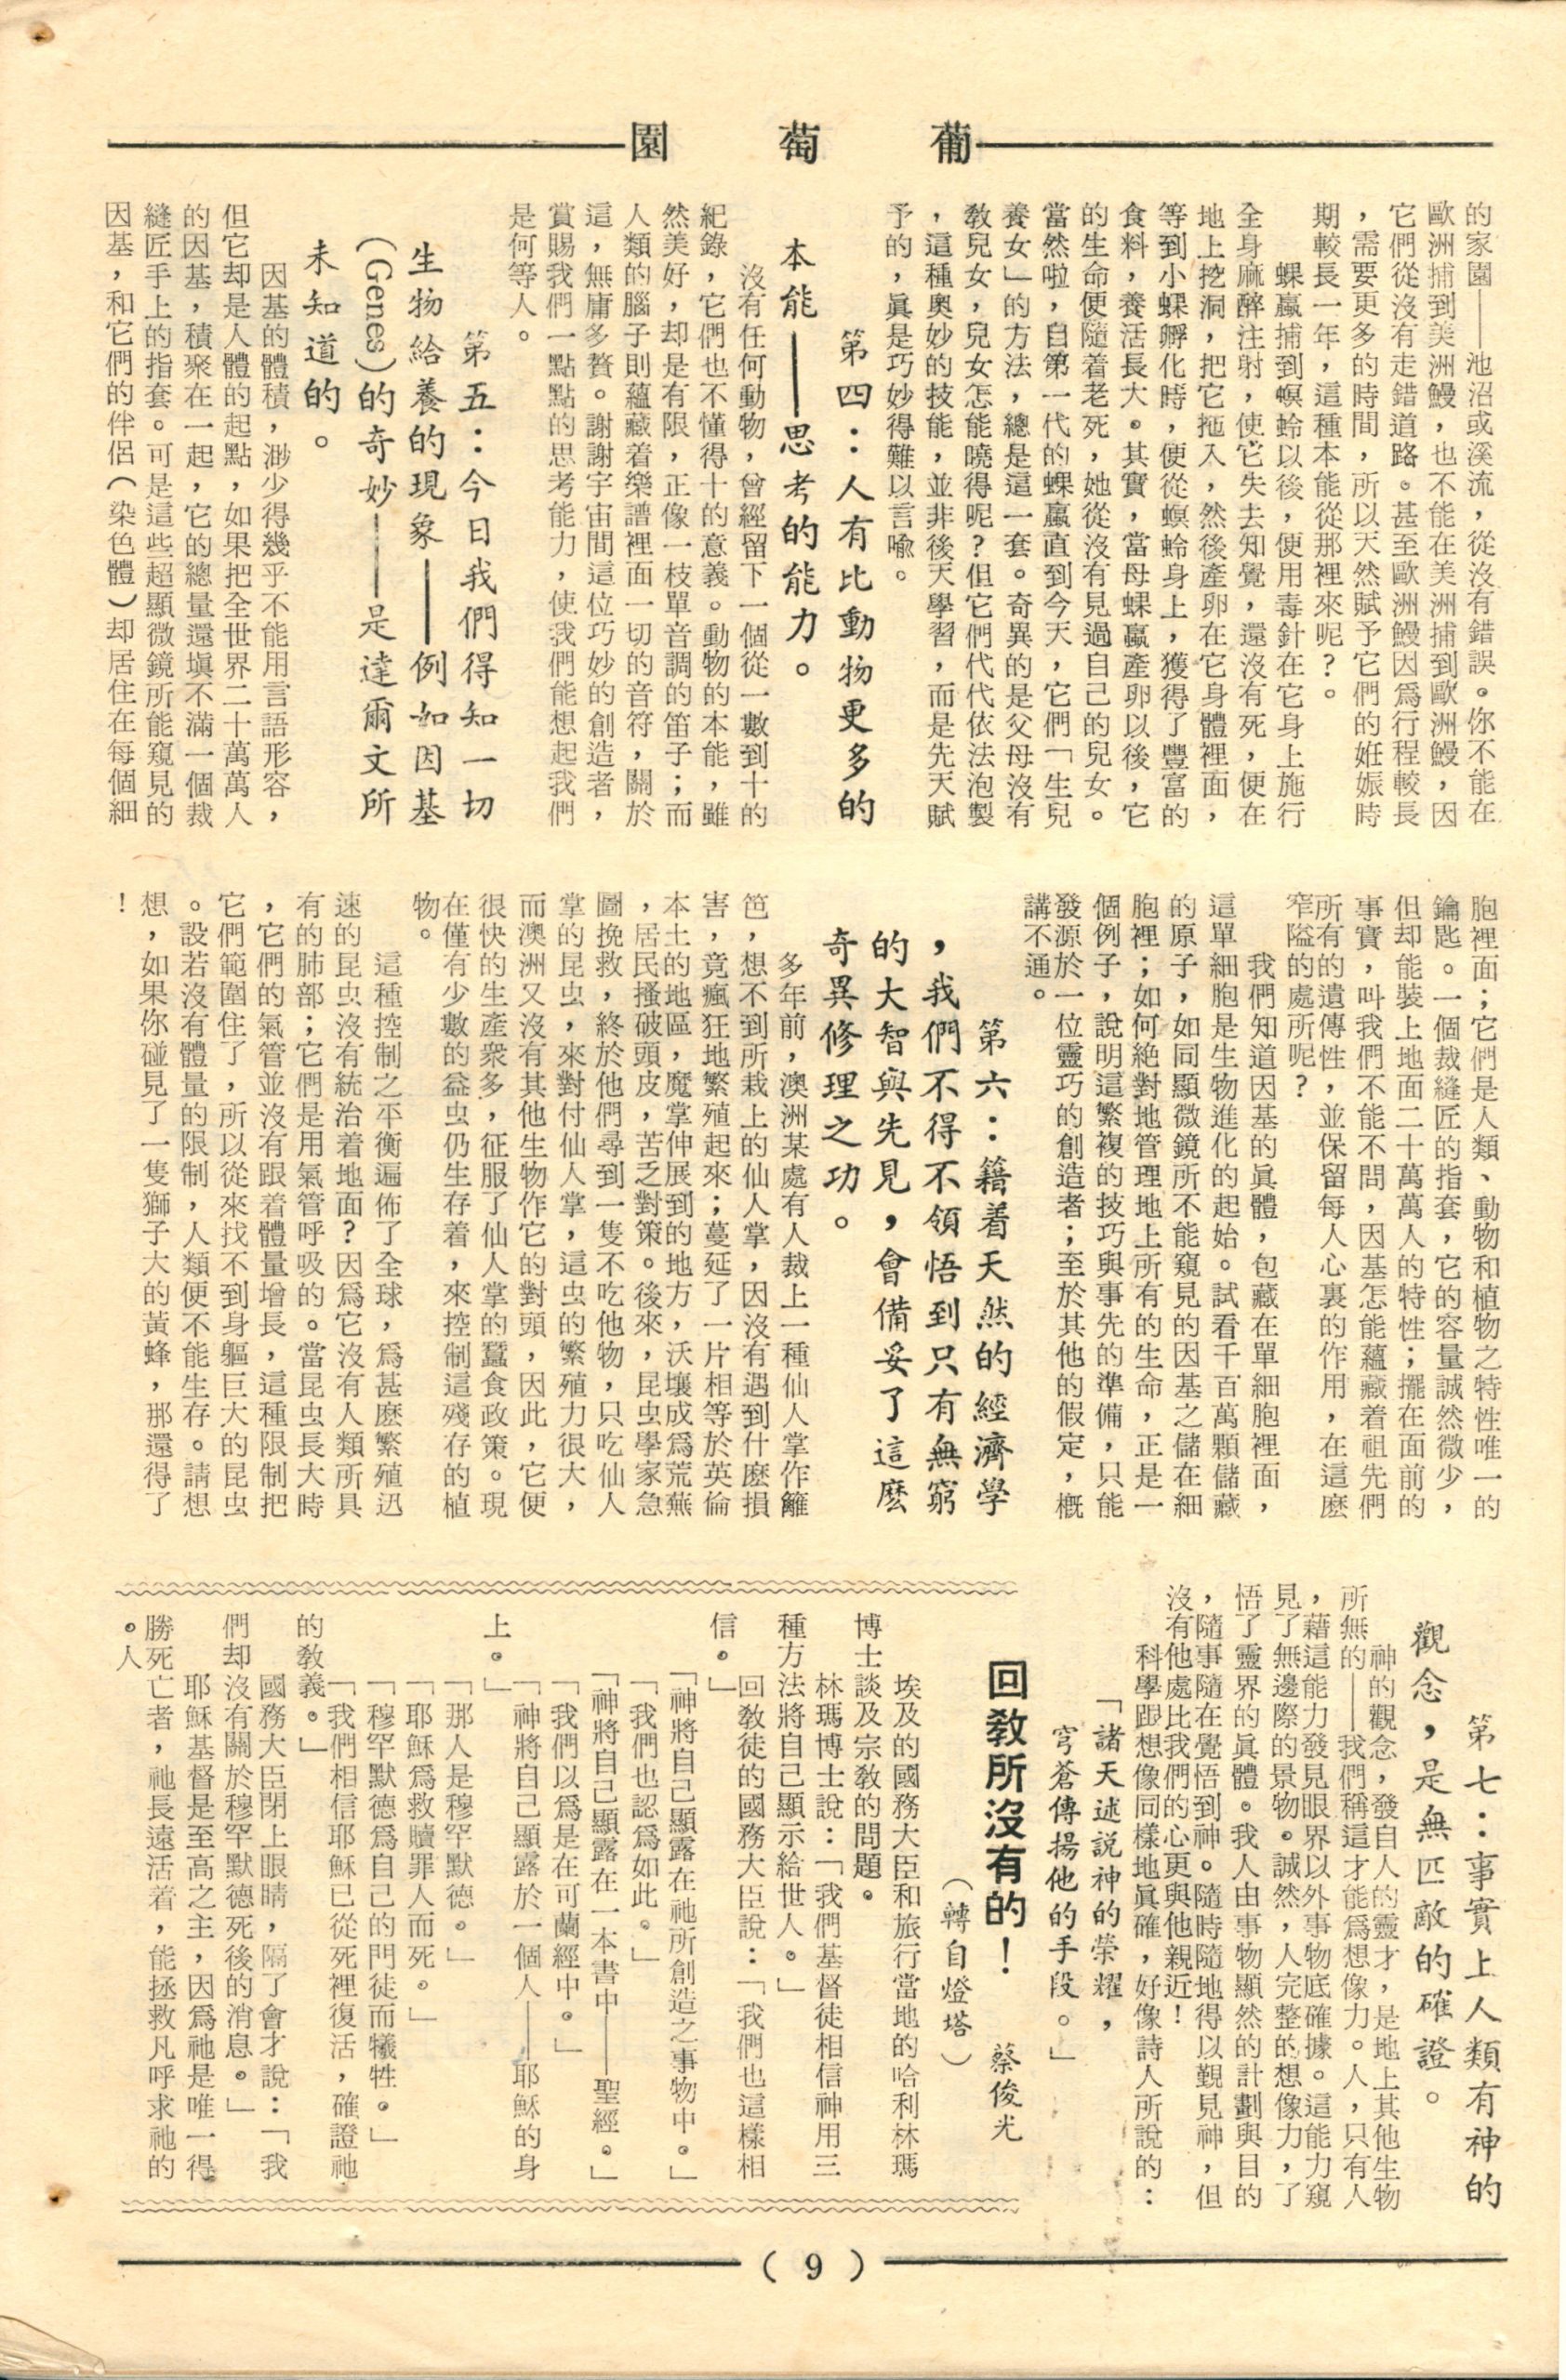 葡萄園
的家園——池沼或溪流，從沒有錯誤。你不能在
歐洲捕到美洲鰻，也不能在美洲捕到歐洲鰻，因
它們從沒有走錯道路。甚至歐洲鰻因爲行程較長
，需要更多的時間，所以天然賦予它們的姙娠時
期較長一年，這種本能從那裡來呢？。
蜾蠃捕到螟蛉以後，便用毒針在它身上施行
全身麻醉注射，使它失去知覺，還沒有死，便在
地上挖洞，把它拖入，然後產卵在它身體裡面，
等到小蜾孵化時，便從螟蛉身上，獲得了豐富的
食料，養活長大。其實，當母蜾蠃產卵以後，它
的生命便隨着老死，她從沒有見過自己的兒女。
當然啦，自第一代的蜾蠃直到今天，它們「生兒
養女」的方法，總是這一套。奇異的是父母沒有
敎兒女，兒女怎能曉得呢？但它們代代依法泡製
，這種奧妙的技能，並非後天學習，而是先天賦
予的，眞是巧妙得難以言喩。
第四：人有比動物更多的
本能——思考的能力。
沒有任何動物，曾經留下一個從一數到十的
紀錄，它們也不懂得十的意義。動物的本能，雖
然美好，却是有限，正像一枝單音調的笛子；而
人類的腦子則蘊藏着樂譜裡面一切的音符，關於
這，無庸多贅。謝謝宇宙間這位巧妙的創造者，
賞賜我們一點點的思考能力，使我們能想起我們
是何等人。
第五：今日我們得知一切
生物給養的現象——例如因基
（Genes）的奇妙——是達爾文所
未知道的。
因基的體積，渺少得幾乎不能用言語形容，
但它却是人體的起點，如果把全世界二十萬萬人
的因基，積聚在一起，它的總量還塡不滿一個裁
縫匠手上的指套。可是這些超顯微鏡所能窺見的
因基，和它們的伴侶（染色體）却居住在每個細
胞裡面；它們是人類、動物和植物之特性唯一的
鑰匙。一個裁縫匠的指套，它的容量誠然微少，
但却能裝上地面二十萬萬人的特性；擺在面前的
事實，叫我們不能不問，因基怎能蘊藏着祖先們
所有的遺傳性，並保留每人心裏的作用，在這麼
窄隘的處所呢？
我們知道因基的眞體，包藏在單細胞裡面，
這單細胞是生物進化的起始。試看千百萬顆儲藏
的原子，如同顯微鏡所不能窺見的因基之儲在細
胞裡；如何絕對地管理地上所有的生命，正是一
個例子，說明這繁複的技巧與事先的準備，只能
發源於一位靈巧的創造者；至於其他的假定，概
講不通。
第六：籍着天然的經濟學
，我們不得不領悟到只有無窮
的大智與先見，會備妥了這麼
奇異修理之功。
多年前，澳洲某處有人裁上一種仙人掌作籬
笆，想不到所栽上的仙人掌，因沒有遇到什麼損
害，竟瘋狂地繁殖起來；蔓延了一片相等於英倫
本土的地區，魔掌伸展到的地方，沃壤成爲荒蕪
，居民搔破頭皮，苦乏對策。後來，昆虫學家急
圖挽救，終於他們尋到一隻不吃他物，只吃仙人
掌的昆虫，來對付仙人掌，這虫的繁殖力很大，
而澳洲又沒有其他生物作它的對頭，因此，它便
很快的生產衆多，征服了仙人掌的蠶食政策。現
在僅有少數的益虫仍生存着，來控制這殘存的植
物。
這種控制之平衡遍佈了全球，爲甚麼繁殖迅
速的昆虫沒有統治着地面？因爲它沒有人類所具
有的肺部；它們是用氣管呼吸的。當昆虫長大時
，它們的氣管並沒有跟着體量增長，這種限制把
它們範圍住了，所以從來找不到身軀巨大的昆虫
。設若沒有體量的限制，人類便不能生存。請想
想，如果你碰見了一隻獅子大的黃蜂，那還得了
！
第七：事實上人類有神的
觀念，是無匹敵的確證。
神的觀念，發自人的靈才，是地上其他生物
所無的——我們稱這才能爲想像力。人，只有人
，藉這能力發見眼界以外事物底確據。這能力窺
見了無邊際的景物。誠然，人完整的想像力，了
悟了靈界的眞體。我人由事物顯然的計劃與目的
，隨事隨在覺悟到神。隨時隨地得以覲見神，但
沒有他處比我們的心更與他親近！
科學跟想像同樣地眞確，好像詩人所說的：
「諸天述説神的榮耀，
穹蒼傳揚他的手段。」
回敎所沒有的！　蔡俊光
（轉自燈塔）
埃及的國務大臣和旅行當地的哈利林瑪
博士談及宗敎的問題。
林瑪博士說：「我們基督徒相信神用三
種方法將自己顯示給世人。」
回敎徒的國務大臣說：「我們也這樣相
信。」
「神將自己顯露在祂所創造之事物中。」
「我們也認爲如此。」
「神將自己顯露在一本書中——聖經。」
「我們以爲是在可蘭經中。」
「神將自己顯露於一個人——耶穌的身
上。」
「那人是穆罕默德。」
「耶穌爲救贖罪人而死。」
「穆罕默德爲自己的門徒而犧牲。」
「我們相信耶穌已從死裡復活，確證祂
的敎義。」
國務大臣閉上眼睛，隔了會才說：「我
們却沒有關於穆罕默德死後的消息。」
耶穌基督是至高之主，因爲祂是唯一得
勝死亡者，祂長遠活着，能拯救凡呼求祂的
人。
（9）